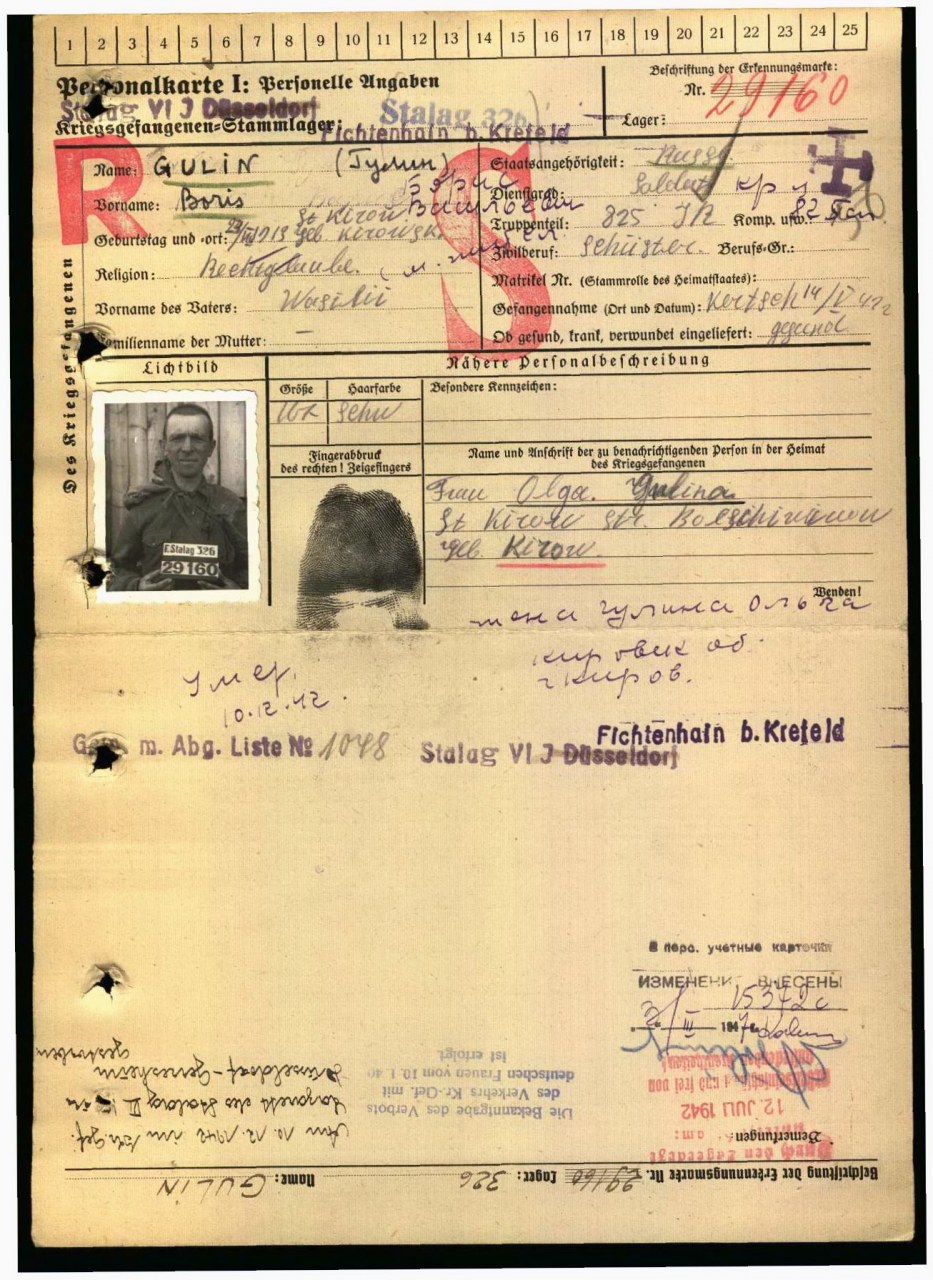 1 2 3 4 5 6 7 8 9 10 11 12 13 14 15 16 17 18 19 20 21 22 23 24 25
Personalkarte I: Personelle Angaben
Beschriftung der Erkennungsmarke:
Nr. 29160
Stalag VI J Düsseldorf
Stalag 326
Kriegsgefangenen-Stammlager:
Fichtenhain b. Krefeld
Lager:
R S
Des Kriegsgefangenen
Name: GULIN (Гулин)
Staatsangehörigkeit: Russe
Vorname: Boris
Борис Васильевич
Dienstgrad: Soldat кр-ц
St Kirow
Truppenteil: 825 IR Komp. usw.:
Geburtstag und -ort: 1913 geb. Kirowsk.
Zivilberuf: Schuster. Berufs-Gr.:
Religion:
Matrikel Nr. (Stammrolle des Heimatstaates):
Vorname des Vaters: Wasilii
Gefangennahme (Ort und Datum): Kertsch 14/V 42
Familienname der Mutter: —
Ob gesund, krank, verwundet eingeliefert: gesund
Lichtbild
Nähere Personalbeschreibung
Größe Haarfarbe Besondere Kennzeichen:
schw
Fingerabdruck
des rechten! Zeigefingers
Name und Anschrift der zu benachrichtigenden Person in der Heimat
des Kriegsgefangenen
Frau Olga. Gulina
St Kirow Str.
geb. Kirow.
E.Stalag 326
29160
Wenden!
жена Гулина Ольга
Кировск об.
г Киров.
Умер.
10.12.42.
m. Abg. Liste № 1048
Fichtenhain b. Krefeld
Stalag VI J Düsseldorf
В перс. учетные карточки
ИЗМЕНЕНИЯ ВНЕСЕНЫ
15372с
III
Die Bekanntgabe des Verbots
des Verkehrs Kr.-Gef. mit
deutschen Frauen vom 10.1.40
ist erfolgt.
12. JULI 1942
Bemerkungen:
Am 10.12.1942 im Kr. Gef.
Lazarett des Stalag VI J in
Düsseldorf-Gerresheim
gestorben
Beschriftung der Erkennungsmarke Nr. 29160 Lager: 326 Name: GULIN